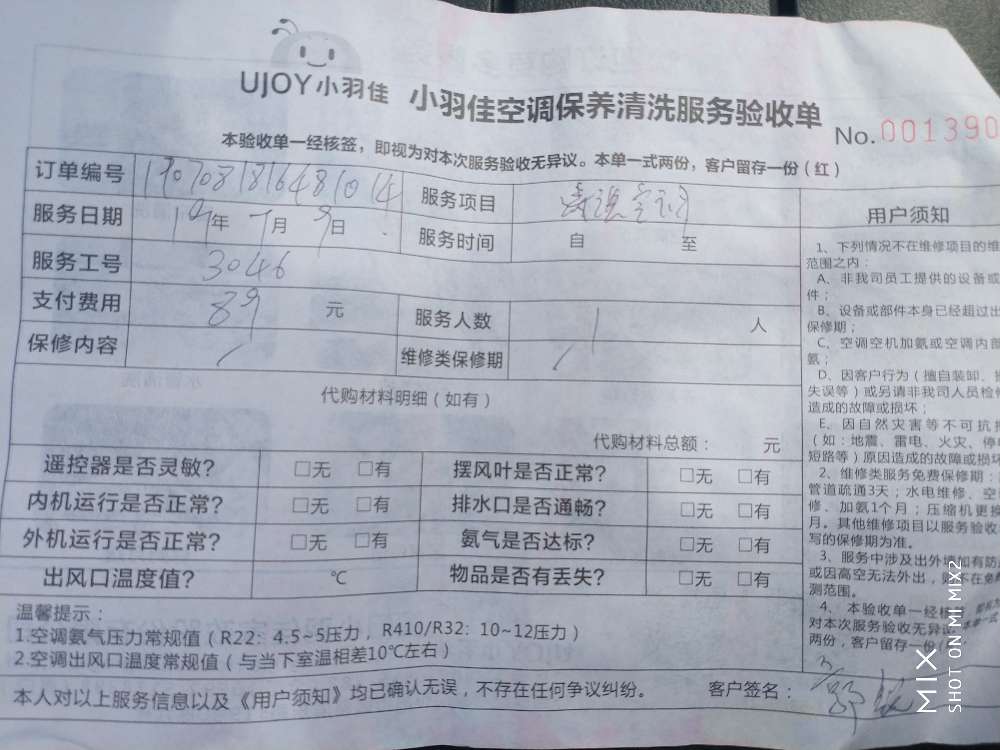 UJOY小羽佳 小羽佳空调保养清洗服务验收单
No.001390
本验收单一经核签，即视为对本次服务验收无异议。本单一式两份，客户留存一份（红）
订单编号 服务项目 清洗空调
服务日期 19年7月9日 服务时间 自 至
服务工号 3046
支付费用 89 元 服务人数 1 人
保修内容 / 维修类保修期 /
代购材料明细（如有）
代购材料总额： 元
遥控器是否灵敏？ □无 □有 摆风叶是否正常？ □无 □有
内机运行是否正常？ □无 □有 排水口是否通畅？ □无 □有
外机运行是否正常？ □无 □有 氨气是否达标？ □无 □有
出风口温度值？ ℃ 物品是否有丢失？ □无 □有
温馨提示：
1.空调氨气压力常规值（R22：4.5~5压力，R410/R32：10~12压力）
2.空调出风口温度常规值（与当下室温相差10℃左右）
本人对以上服务信息以及《用户须知》均已确认无误，不存在任何争议纠纷。 客户签名：
用户须知
1、下列情况不在维修项目的维
范围之内：
A、非我司员工提供的设备或
件；
B、设备或部件本身已经超过出
保修期；
C、空调空机加氨或空调内部
氨；
D、因客户行为（擅自装卸、
失误等）或另请非我司人员检修
造成的故障或损坏；
E、因自然灾害等不可抗拒
（如：地震、雷电、火灾、停
短路等）原因造成的故障或损坏
2、维修类服务免费保修期：
管道疏通3天；水电维修、空
修、加氨1个月；压缩机更换
月。其他维修项目以服务验收
写的保修期为准。
3、服务中涉及出外墙如有防
或因高空无法外出，则不在
测范围。
4、本验收单一经核
对本次服务验收无异议
两份，客户留存一份（
MIX
SHOT ON MI MIX2